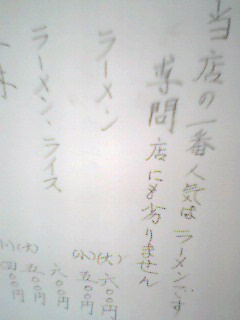 当店の一番人気はラーメンです
専問店にも劣りません
ラーメン (大)六〇〇円
(小)五〇〇円
ラーメン、ライス 六〇〇円
(大)五〇〇円
(小)四〇〇円